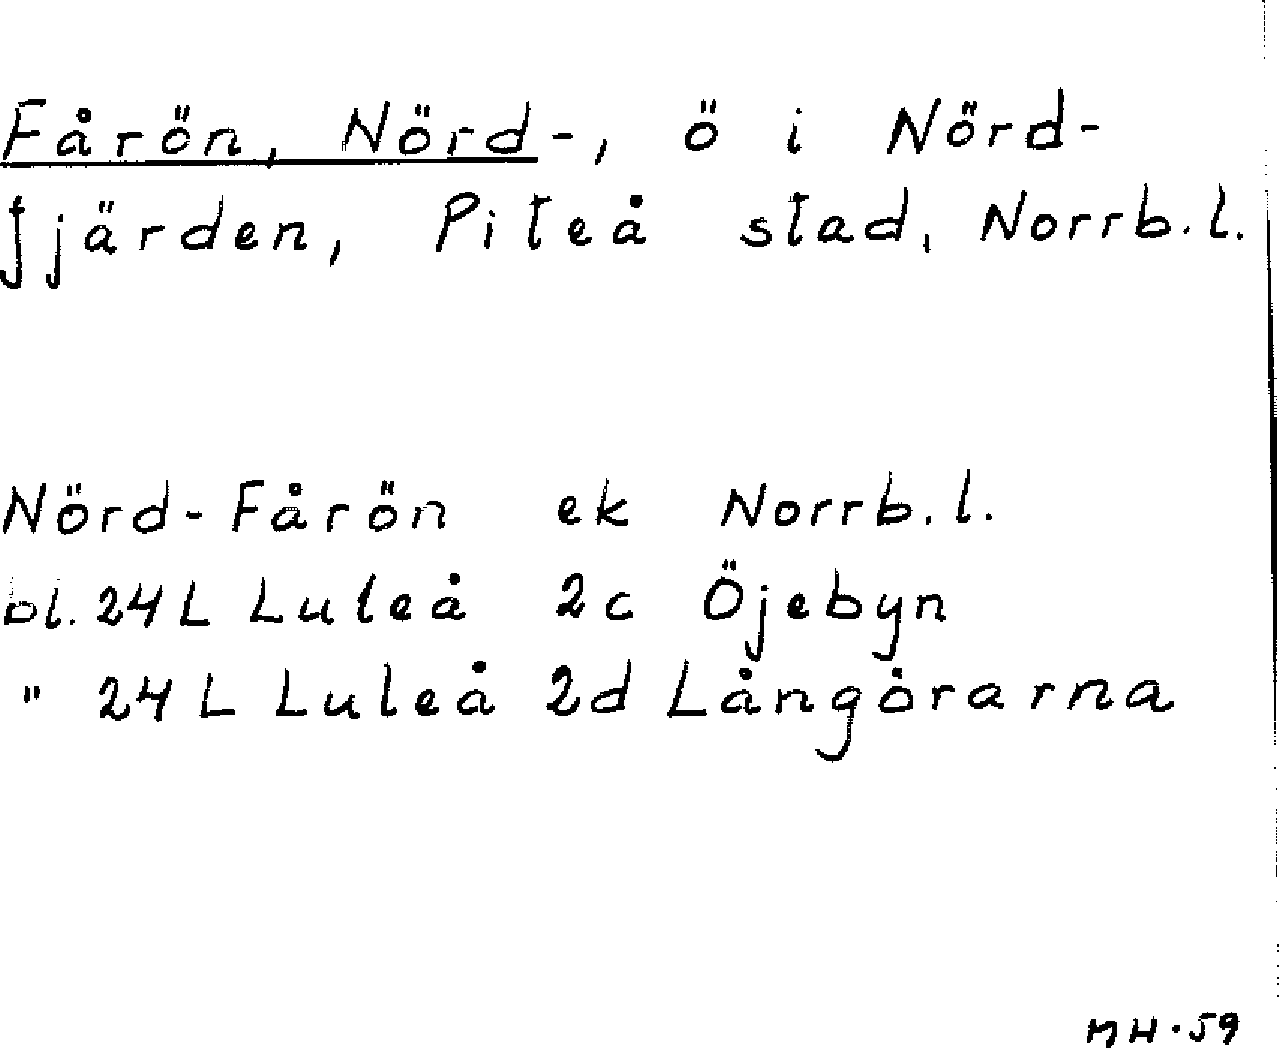 Fårön, Nörd-, ö i Nörd-
fjärden, Piteå stad, Norrb.l.
Nörd-Fårön ek Norrb.l.
bl. 24L Luleå 2c Öjebyn
" 24L Luleå 2d Långörarna
MH.59